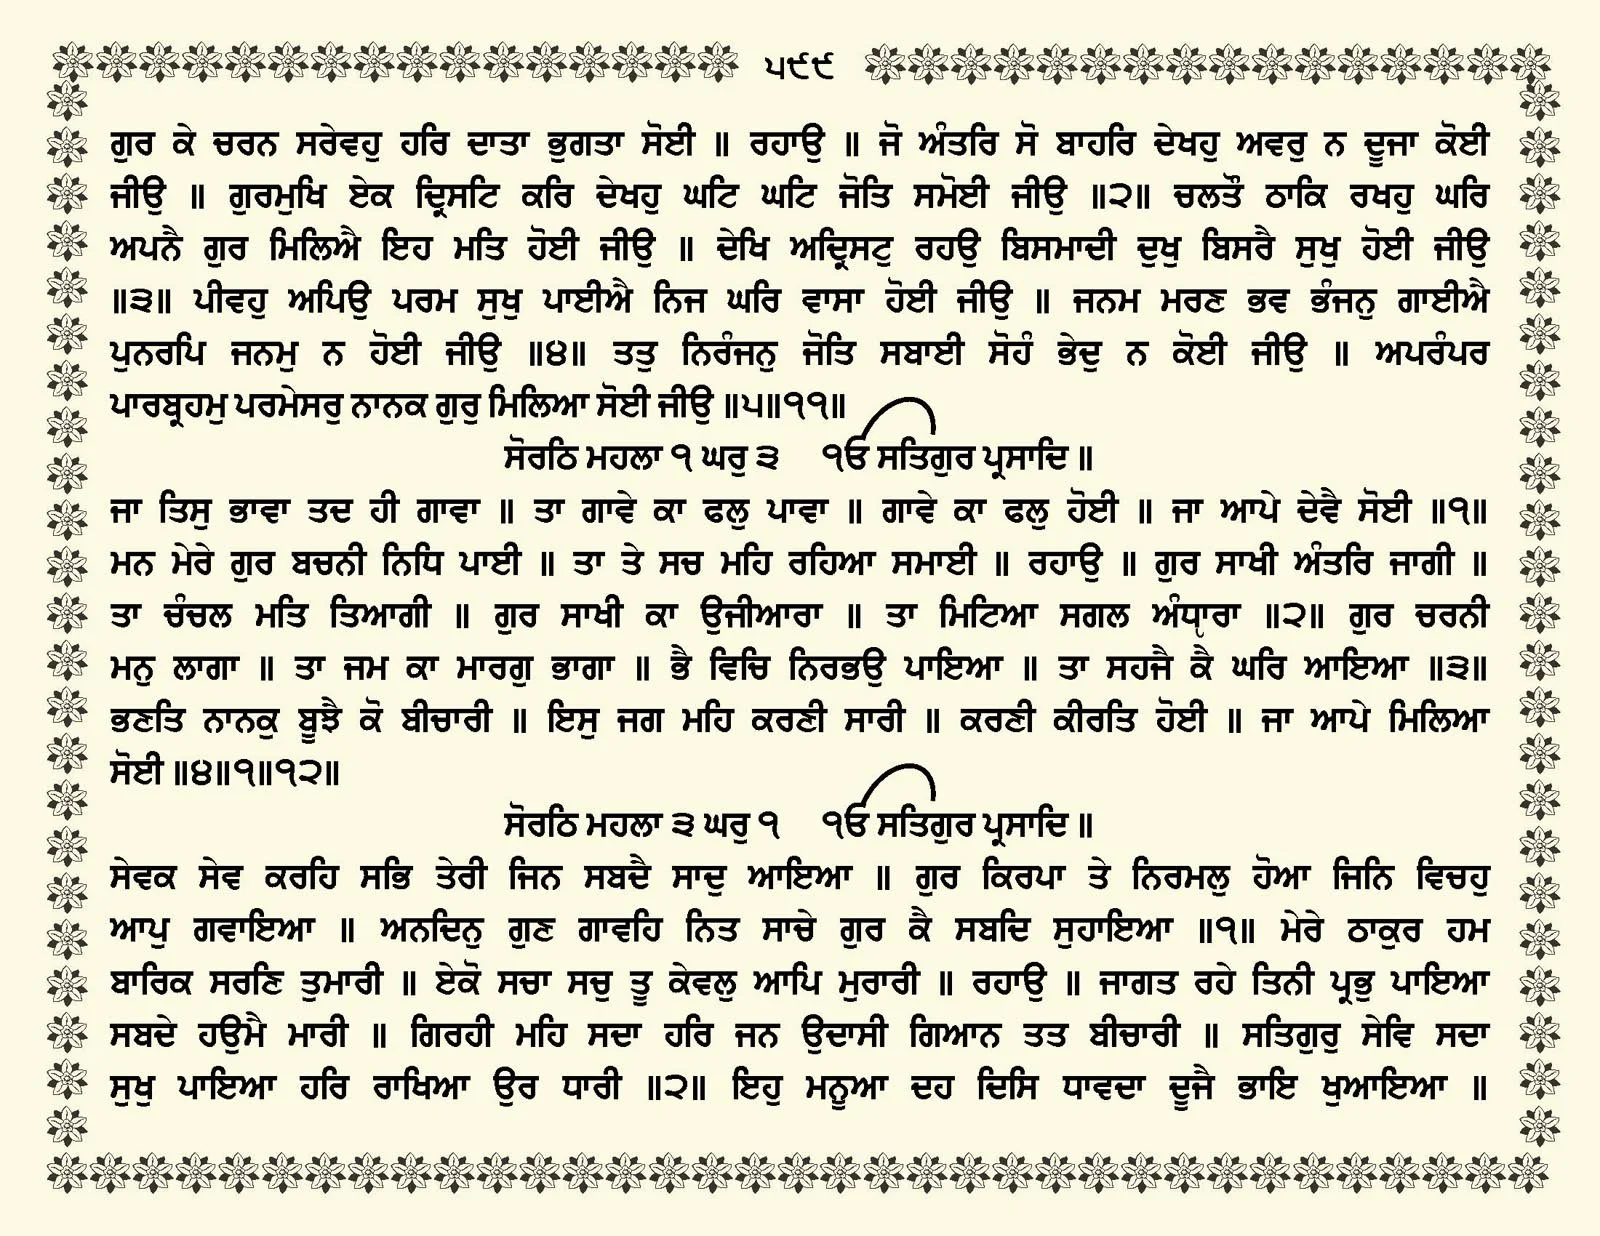 ੫੯੯
ਗੁਰ ਕੇ ਚਰਨ ਸਰੇਵਹੁ ਹਰਿ ਦਾਤਾ ਭੁਗਤਾ ਸੋਈ ॥ ਰਹਾਉ ॥ ਜੋ ਅੰਤਰਿ ਸੋ ਬਾਹਰਿ ਦੇਖਹੁ ਅਵਰੁ ਨ ਦੂਜਾ ਕੋਈ
ਜੀਉ ॥ ਗੁਰਮੁਖਿ ਏਕ ਦ੍ਰਿਸਟਿ ਕਰਿ ਦੇਖਹੁ ਘਟਿ ਘਟਿ ਜੋਤਿ ਸਮੋਈ ਜੀਉ ॥੨॥ ਚਲਤੌ ਠਾਕਿ ਰਖਹੁ ਘਰਿ
ਅਪਨੈ ਗੁਰ ਮਿਲਿਐ ਇਹ ਮਤਿ ਹੋਈ ਜੀਉ ॥ ਦੇਖਿ ਅਦ੍ਰਿਸਟੁ ਰਹਉ ਬਿਸਮਾਦੀ ਦੁਖੁ ਬਿਸਰੈ ਸੁਖੁ ਹੋਈ ਜੀਉ
॥੩॥ ਪੀਵਹੁ ਅਪਿਉ ਪਰਮ ਸੁਖੁ ਪਾਈਐ ਨਿਜ ਘਰਿ ਵਾਸਾ ਹੋਈ ਜੀਉ ॥ ਜਨਮ ਮਰਣ ਭਵ ਭੰਜਨੁ ਗਾਈਐ
ਪੁਨਰਪਿ ਜਨਮੁ ਨ ਹੋਈ ਜੀਉ ॥੪॥ ਤਤੁ ਨਿਰੰਜਨੁ ਜੋਤਿ ਸਬਾਈ ਸੋਹੰ ਭੇਦੁ ਨ ਕੋਈ ਜੀਉ ॥ ਅਪਰੰਪਰ
ਪਾਰਬ੍ਰਹਮੁ ਪਰਮੇਸਰੁ ਨਾਨਕ ਗੁਰੁ ਮਿਲਿਆ ਸੋਈ ਜੀਉ ॥੫॥੧੧॥
ਸੋਰਠਿ ਮਹਲਾ ੧ ਘਰੁ ੩ ੴ ਸਤਿਗੁਰ ਪ੍ਰਸਾਦਿ ॥
ਜਾ ਤਿਸੁ ਭਾਵਾ ਤਦ ਹੀ ਗਾਵਾ ॥ ਤਾ ਗਾਵੇ ਕਾ ਫਲੁ ਪਾਵਾ ॥ ਗਾਵੇ ਕਾ ਫਲੁ ਹੋਈ ॥ ਜਾ ਆਪੇ ਦੇਵੈ ਸੋਈ ॥੧॥
ਮਨ ਮੇਰੇ ਗੁਰ ਬਚਨੀ ਨਿਧਿ ਪਾਈ ॥ ਤਾ ਤੇ ਸਚ ਮਹਿ ਰਹਿਆ ਸਮਾਈ ॥ ਰਹਾਉ ॥ ਗੁਰ ਸਾਖੀ ਅੰਤਰਿ ਜਾਗੀ ॥
ਤਾ ਚੰਚਲ ਮਤਿ ਤਿਆਗੀ ॥ ਗੁਰ ਸਾਖੀ ਕਾ ਉਜੀਆਰਾ ॥ ਤਾ ਮਿਟਿਆ ਸਗਲ ਅੰਧੵਾਰਾ ॥੨॥ ਗੁਰ ਚਰਨੀ
ਮਨੁ ਲਾਗਾ ॥ ਤਾ ਜਮ ਕਾ ਮਾਰਗੁ ਭਾਗਾ ॥ ਭੈ ਵਿਚਿ ਨਿਰਭਉ ਪਾਇਆ ॥ ਤਾ ਸਹਜੈ ਕੈ ਘਰਿ ਆਇਆ ॥੩॥
ਭਣਤਿ ਨਾਨਕੁ ਬੂਝੈ ਕੋ ਬੀਚਾਰੀ ॥ ਇਸੁ ਜਗ ਮਹਿ ਕਰਣੀ ਸਾਰੀ ॥ ਕਰਣੀ ਕੀਰਤਿ ਹੋਈ ॥ ਜਾ ਆਪੇ ਮਿਲਿਆ
ਸੋਈ ॥੪॥੧॥੧੨॥
ਸੋਰਠਿ ਮਹਲਾ ੩ ਘਰੁ ੧ ੴ ਸਤਿਗੁਰ ਪ੍ਰਸਾਦਿ ॥
ਸੇਵਕ ਸੇਵ ਕਰਹਿ ਸਭਿ ਤੇਰੀ ਜਿਨ ਸਬਦੈ ਸਾਦੁ ਆਇਆ ॥ ਗੁਰ ਕਿਰਪਾ ਤੇ ਨਿਰਮਲੁ ਹੋਆ ਜਿਨਿ ਵਿਚਹੁ
ਆਪੁ ਗਵਾਇਆ ॥ ਅਨਦਿਨੁ ਗੁਣ ਗਾਵਹਿ ਨਿਤ ਸਾਚੇ ਗੁਰ ਕੈ ਸਬਦਿ ਸੁਹਾਇਆ ॥੧॥ ਮੇਰੇ ਠਾਕੁਰ ਹਮ
ਬਾਰਿਕ ਸਰਣਿ ਤੁਮਾਰੀ ॥ ਏਕੋ ਸਚਾ ਸਚੁ ਤੂ ਕੇਵਲੁ ਆਪਿ ਮੁਰਾਰੀ ॥ ਰਹਾਉ ॥ ਜਾਗਤ ਰਹੇ ਤਿਨੀ ਪ੍ਰਭੁ ਪਾਇਆ
ਸਬਦੇ ਹਉਮੈ ਮਾਰੀ ॥ ਗਿਰਹੀ ਮਹਿ ਸਦਾ ਹਰਿ ਜਨ ਉਦਾਸੀ ਗਿਆਨ ਤਤ ਬੀਚਾਰੀ ॥ ਸਤਿਗੁਰੁ ਸੇਵਿ ਸਦਾ
ਸੁਖੁ ਪਾਇਆ ਹਰਿ ਰਾਖਿਆ ਉਰ ਧਾਰੀ ॥੨॥ ਇਹੁ ਮਨੂਆ ਦਹ ਦਿਸਿ ਧਾਵਦਾ ਦੂਜੈ ਭਾਇ ਖੁਆਇਆ ॥